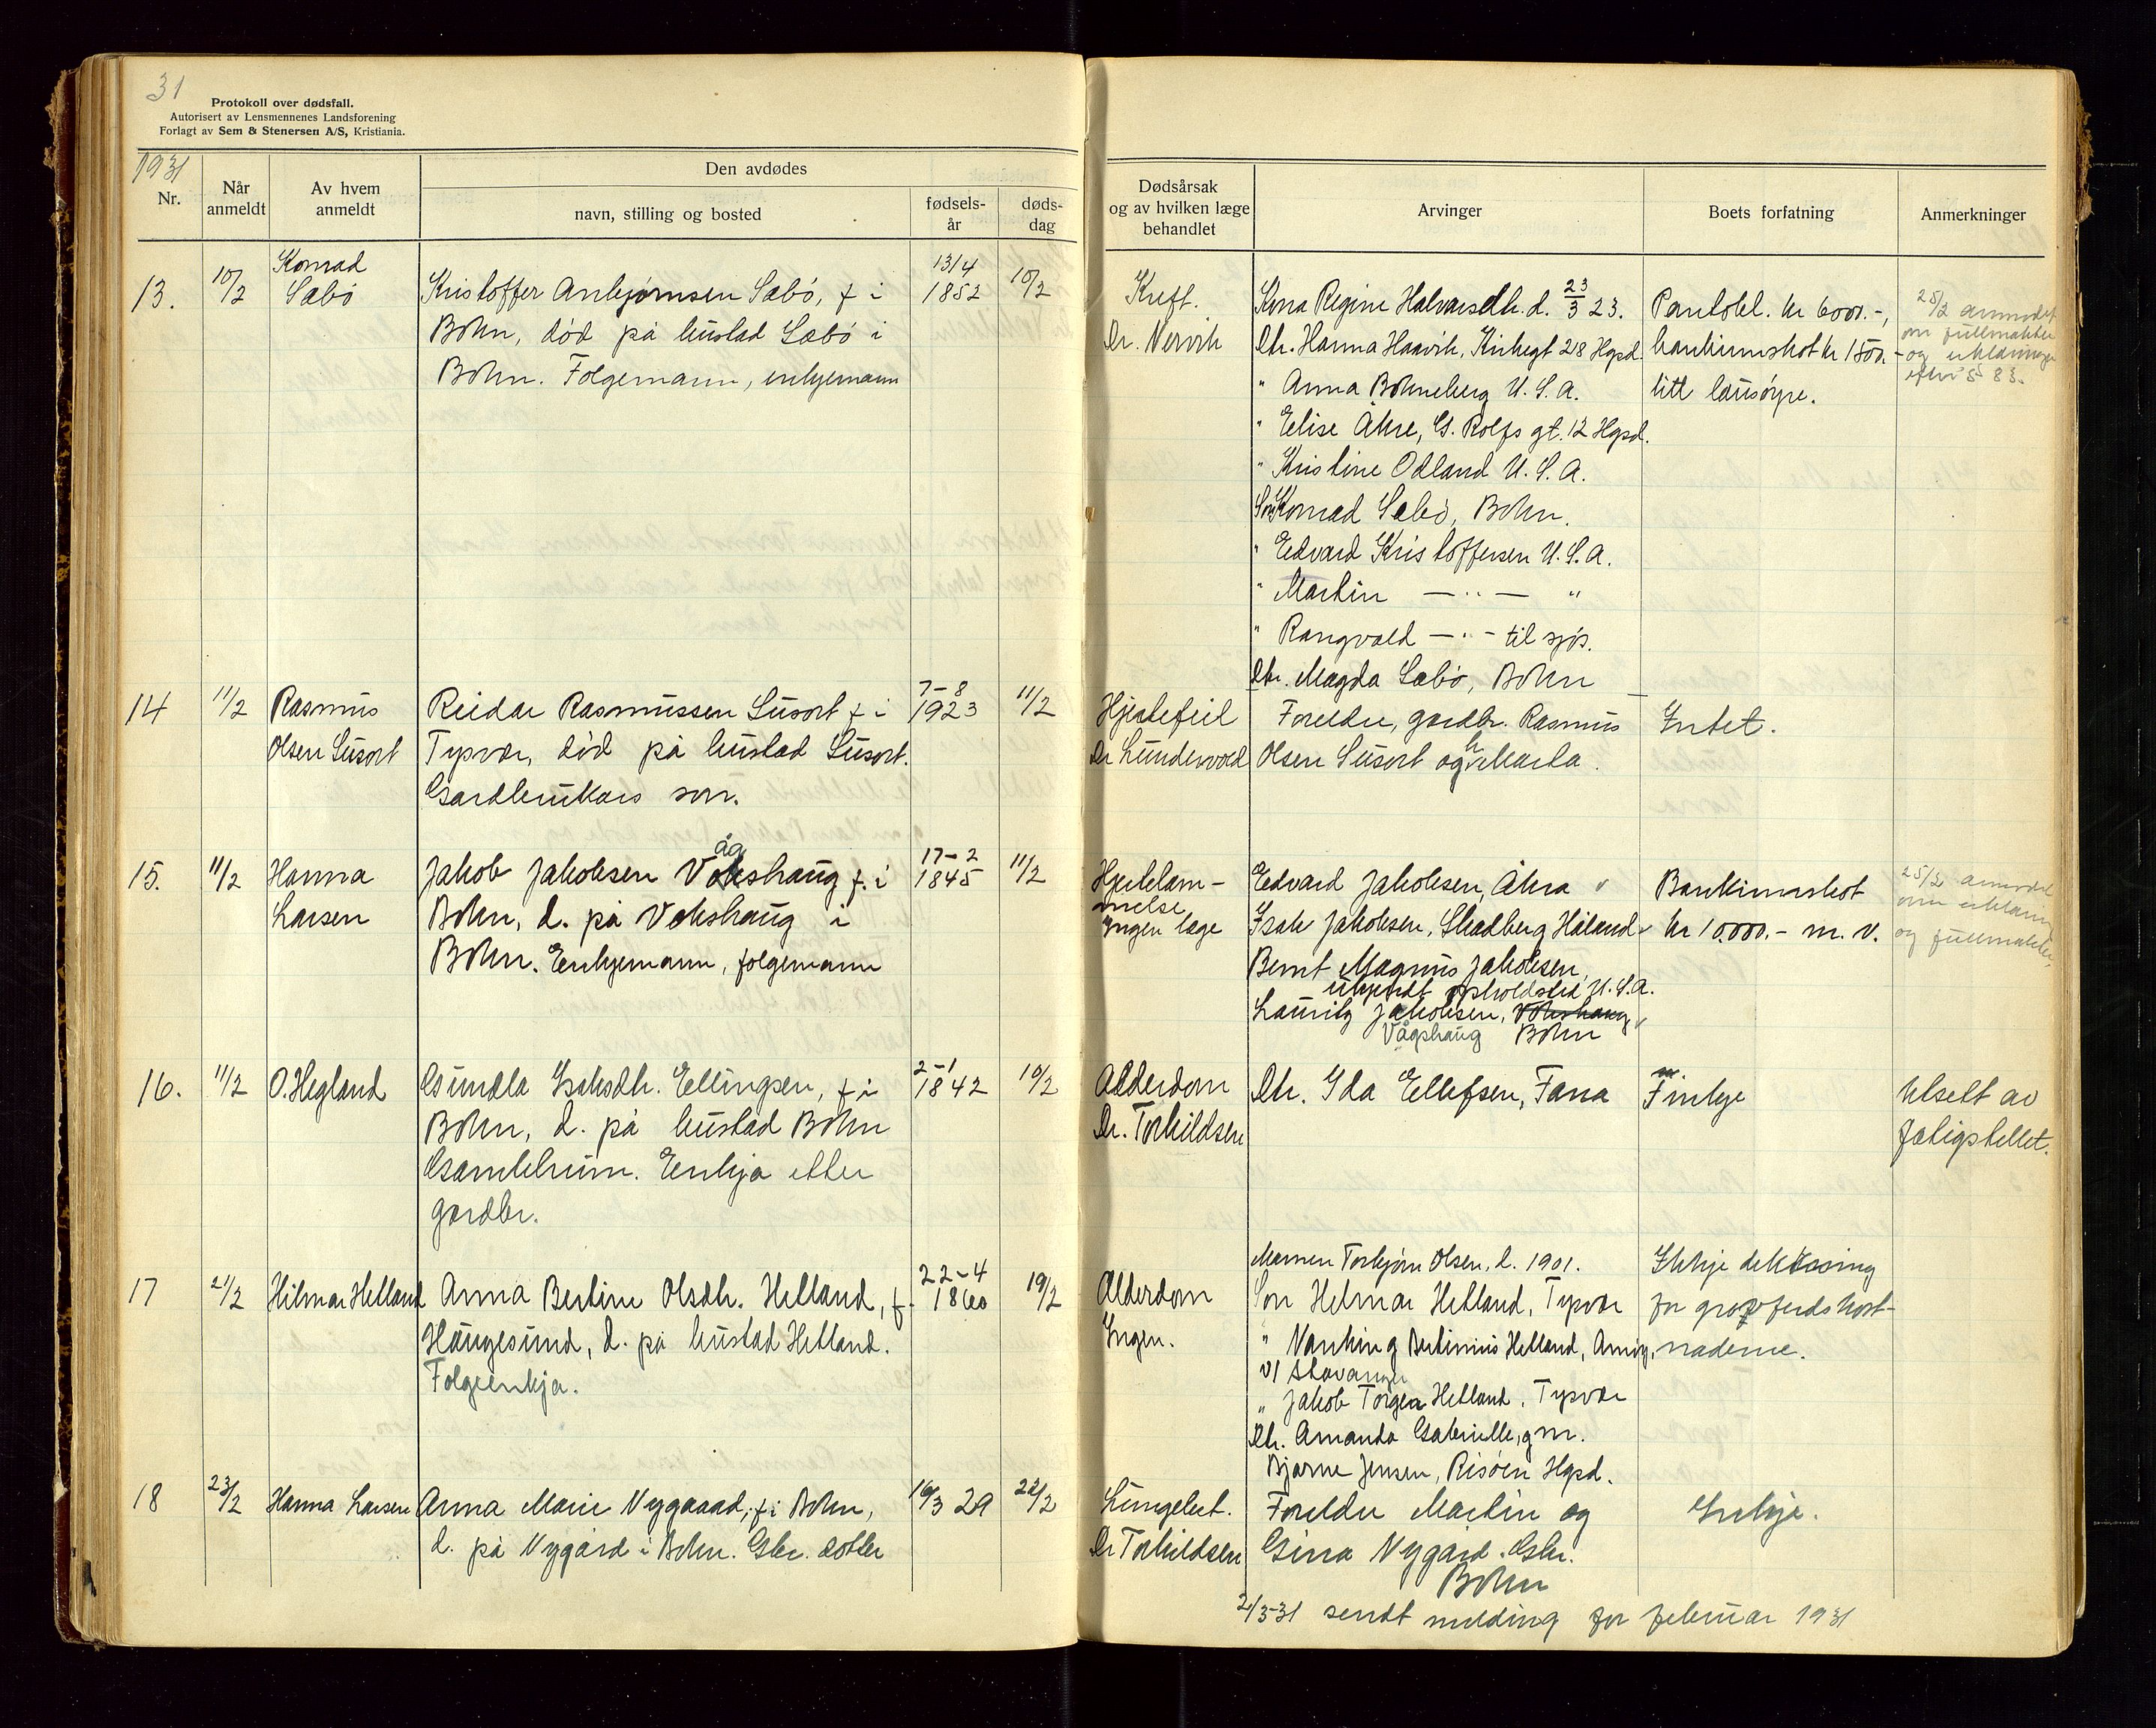 31
Protokoll over dødsfall.
Autorisert av Lensmennenes Landsforening
Forlagt av Sem & Stenersen A/S, Kristiania.
1931
Nr.
Når anmeldt
Av hvem anmeldt
Den avdødes
navn, stilling og bosted
fødsels-år
døds-dag
Dødsårsak
og av hvilken læge
behandlet
Arvinger
Boets forfatning
Anmerkninger
13.
10/2
Konrad
Sæbö
Kristoffer Anbjørnsen Sæbö, f i
Bokn, död på bustad Sæbö i
Bokn. Folgemann, enkjemann
13/4
1852
10/2
Kreft.
Dr. Nervik
Kona Regine Halvarsdtr. d. 23/3 23.
Dtr. Hanna Haavik, Kirkegt 218 Hgsd.
" Anna Bohneberg U.S.A.
" Elise Åkre, G. Rolfs gt. 12 Hgsd.
" Kristine Odland U.S.A.
Son Konrad Sæbö, Bokn.
" Edvard Kristoffersen U.S.A.
" Martin — " — "
" Rangvald — " — til sjös.
Dtr. Magda Sæbö, Bokn
Pantobl. kr 6000.-,
bankinnskot kr 1500.-
litt lausöyre.
25/2 anmodet
om fullmakter
og erklæringer
efter § 83.
14
11/2
Rasmus
Olsen Susort
Reidar Rasmussen Susort f i
Tysvær, död på bustad Susort.
Gardbrukars son.
7-8
1923
11/2
Hjertefeil
Dr Lundervold
Foreldre, gardbr. Rasmus
Olsen Susort og h. Marta.
Intet.
15.
11/2
Hanna
Larsen
Jakob Jakobsen Vokshaug f. i
åg
Bokn, d. på Vokshaug i
Bokn. Enkjemann, folgemann
17-2
1845
11/2
Hjertelam-
melse
Ingen læge
Edvard Jakobsen, Åkra v
Isak Jakobsen, Skadberg Håland v
Bernt Magnus Jakobsen,
ukjendt opholdsted U.S.A.
Lauritz Jakobsen, Vokshaug v
Vågshaug Bokn
Bankinnskot
kr 10.000.- m. v.
25/2 anmodet
om erklæring
og fullmakter.
16.
11/2
O. Hegland
Gundla Isaksdtr. Ellingsen, f i
Bokn, d. på bustad Bokn
Gamleheim. Enkja etter
gardbr.
2-1
1842
10/2
Alderdom
Dr. Torkildsen
Dtr. Ida Ellefsen, Fana
Innkje
Utselt av
fatigstellet.
17
21/2
Hilmar Hetland
Anna Bertine Olsdtr. Hetland, f.
Haugesund, d. på bustad Hetland.
Folgeenkja.
22-4
1860
19/2
Alderdom
Ingen.
Mannen Torbjörn Olsen, d. 1901.
Son Helmar Hetland, Tysvær
" Nanking Bertinius Hetland, Amöy,
v/ Stavanger
" Jakob Torger Hetland, Tysvær
Dtr. Amanda Gabrielle, gm.
Bjarne Jensen, Risöen Hgsd.
Ikkje dekkning
for gravferdskost-
nadene.
18
23/2
Hanna Larsen
Anna Marie Nygaard, f i Bokn,
d. på Nygård i Bokn. Gbr. dotter
16/3 29
22/2
Lungebet.
Dr Torkildsen
Foreldre Martin og
Gina Nygård. Gbr.
Bokn
Innkje.
2/3-31 sendt melding for februar 1931